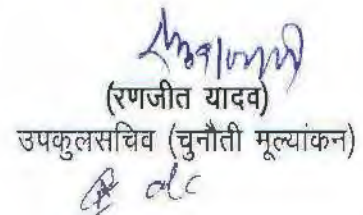 (रणजीत यादव)
उपकुलसचिव (चुनौती मूल्यांकन)